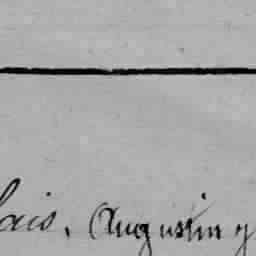 lais, Augustin y